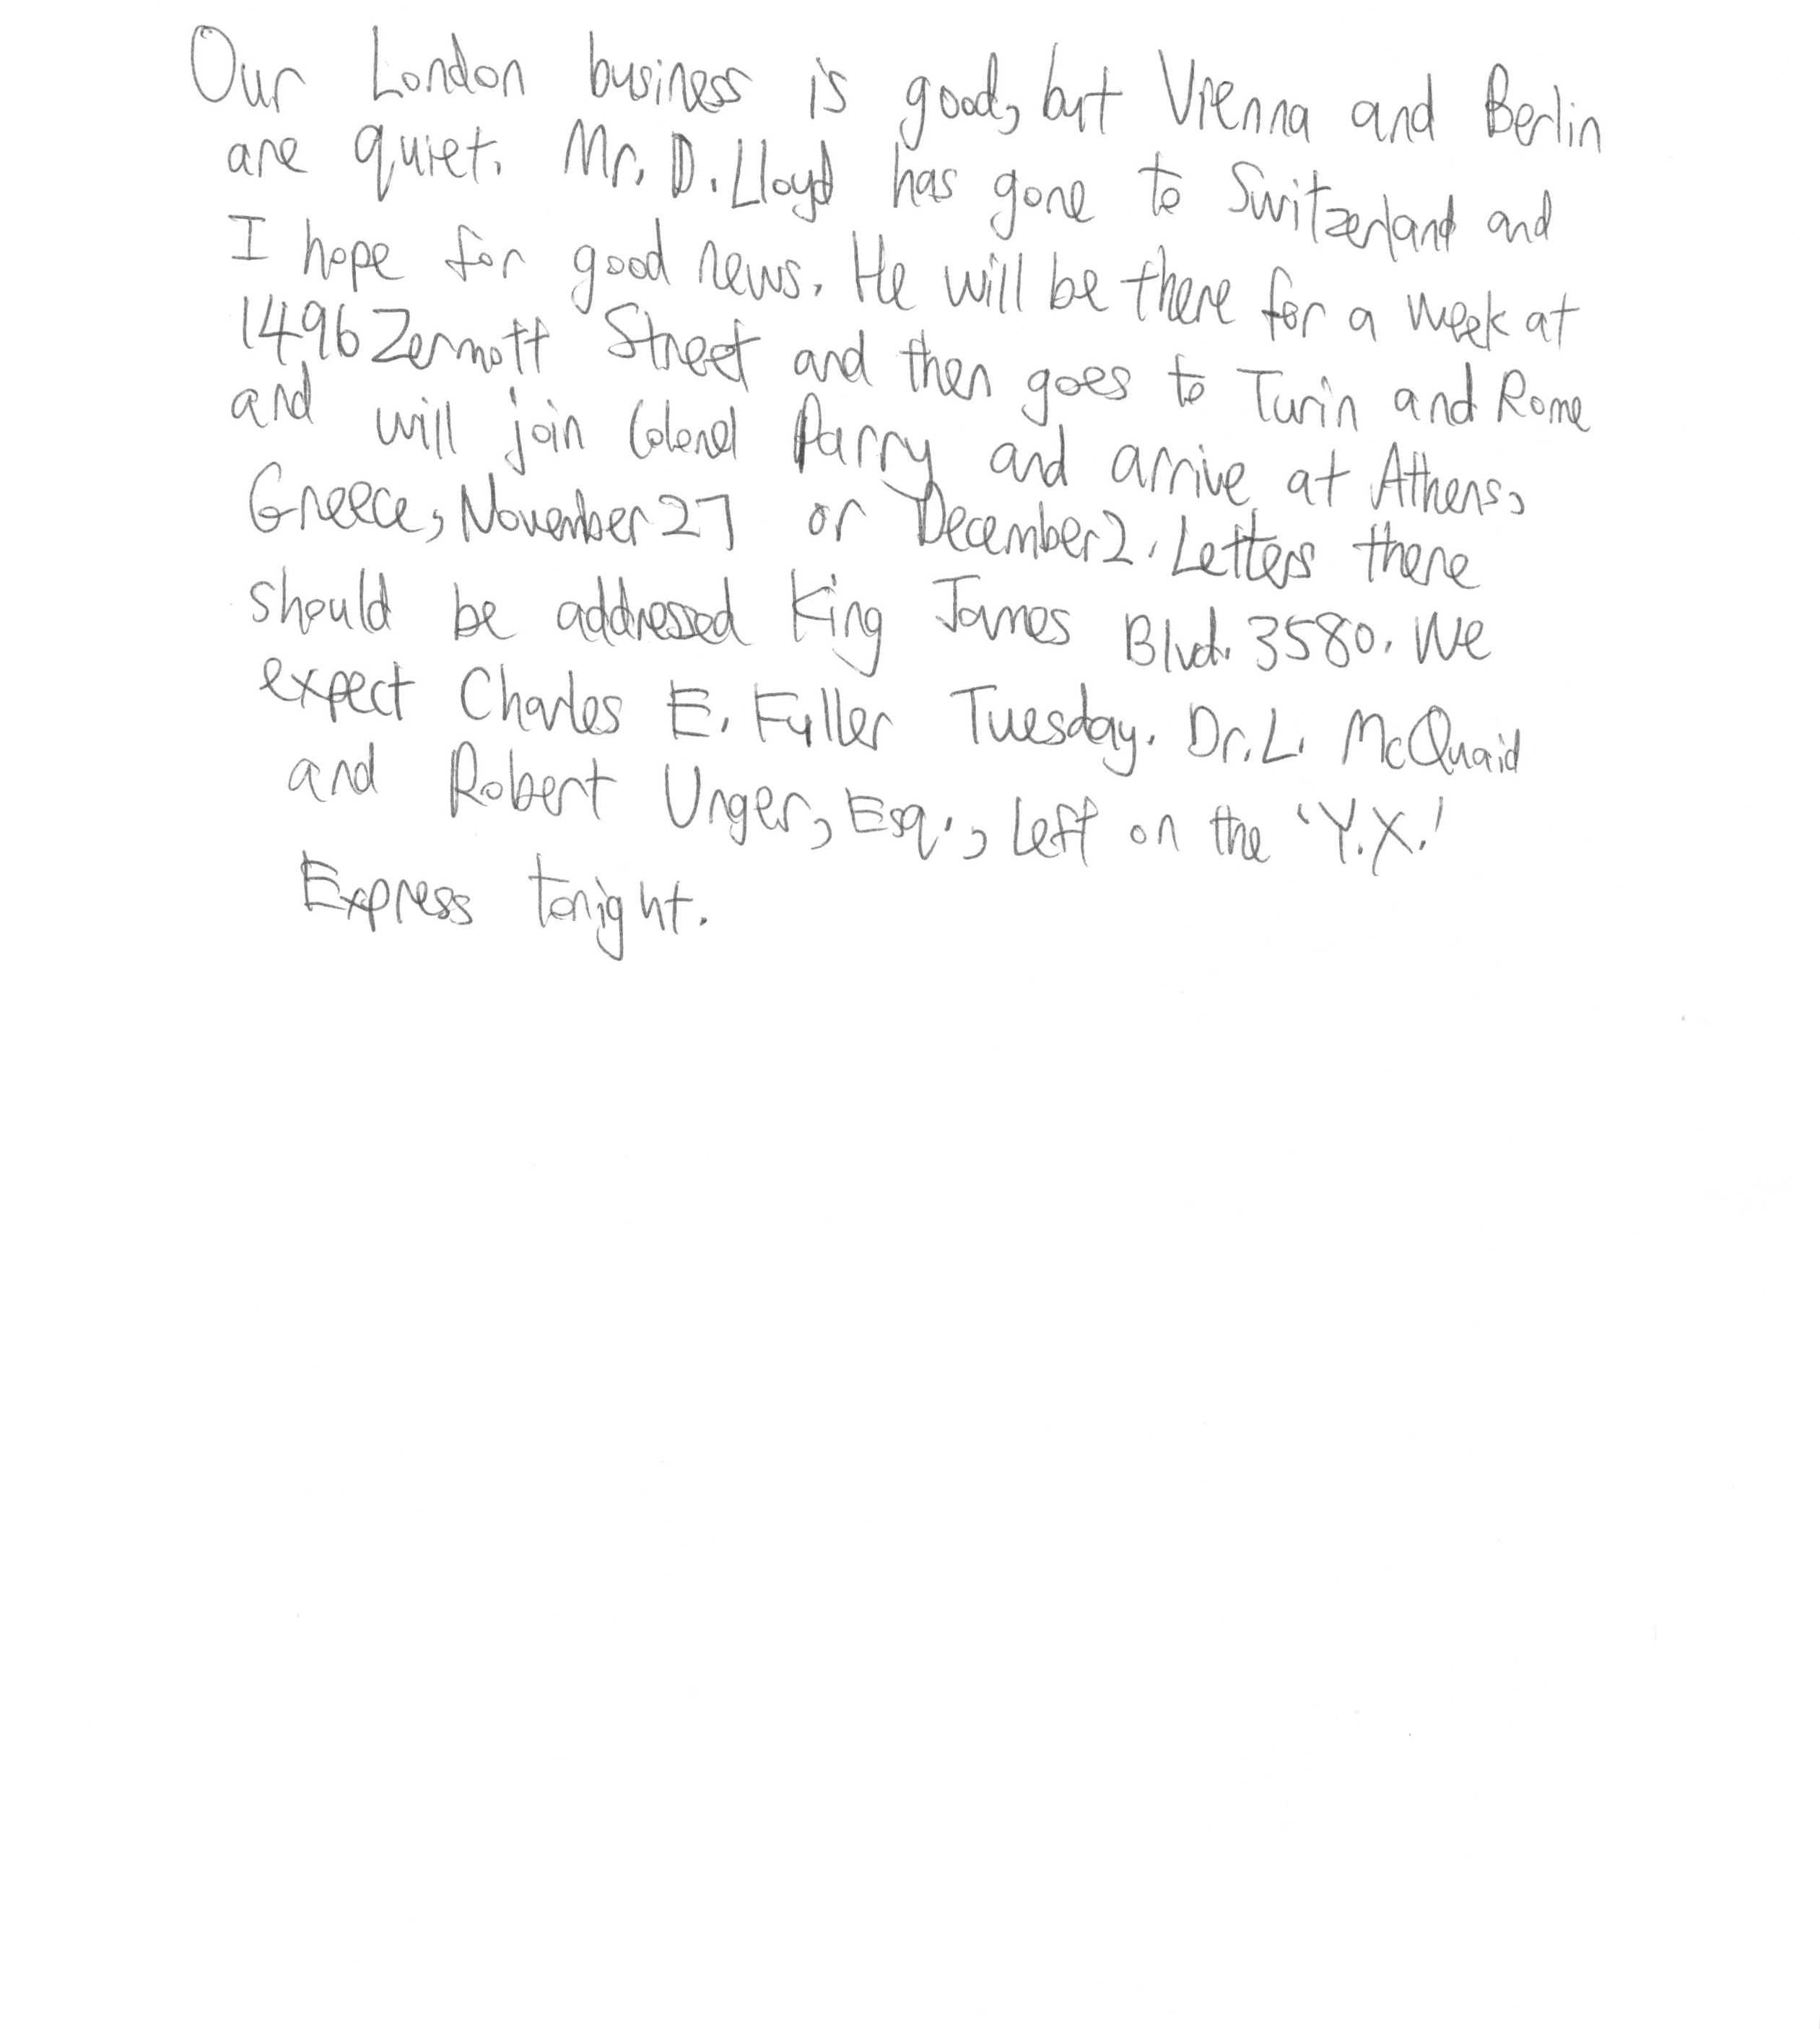 Our London business is good, but Vienna and Berlin
are quiet. Mr. D. Lloyd has gone to Switzerland and
I hope for good news. He will be there for a week at
1496 Zermott Street and then goes to Turin and Rome
and will join Colonel Parry and arrive at Athens,
Greece, November 27 or December 2. Letters there
should be addressed King James Blvd. 3580. We
expect Charles E. Fuller Tuesday. Dr. L. McQuaid
and Robert Unger, Esq., left on the 'Y.X.'
Express tonight.